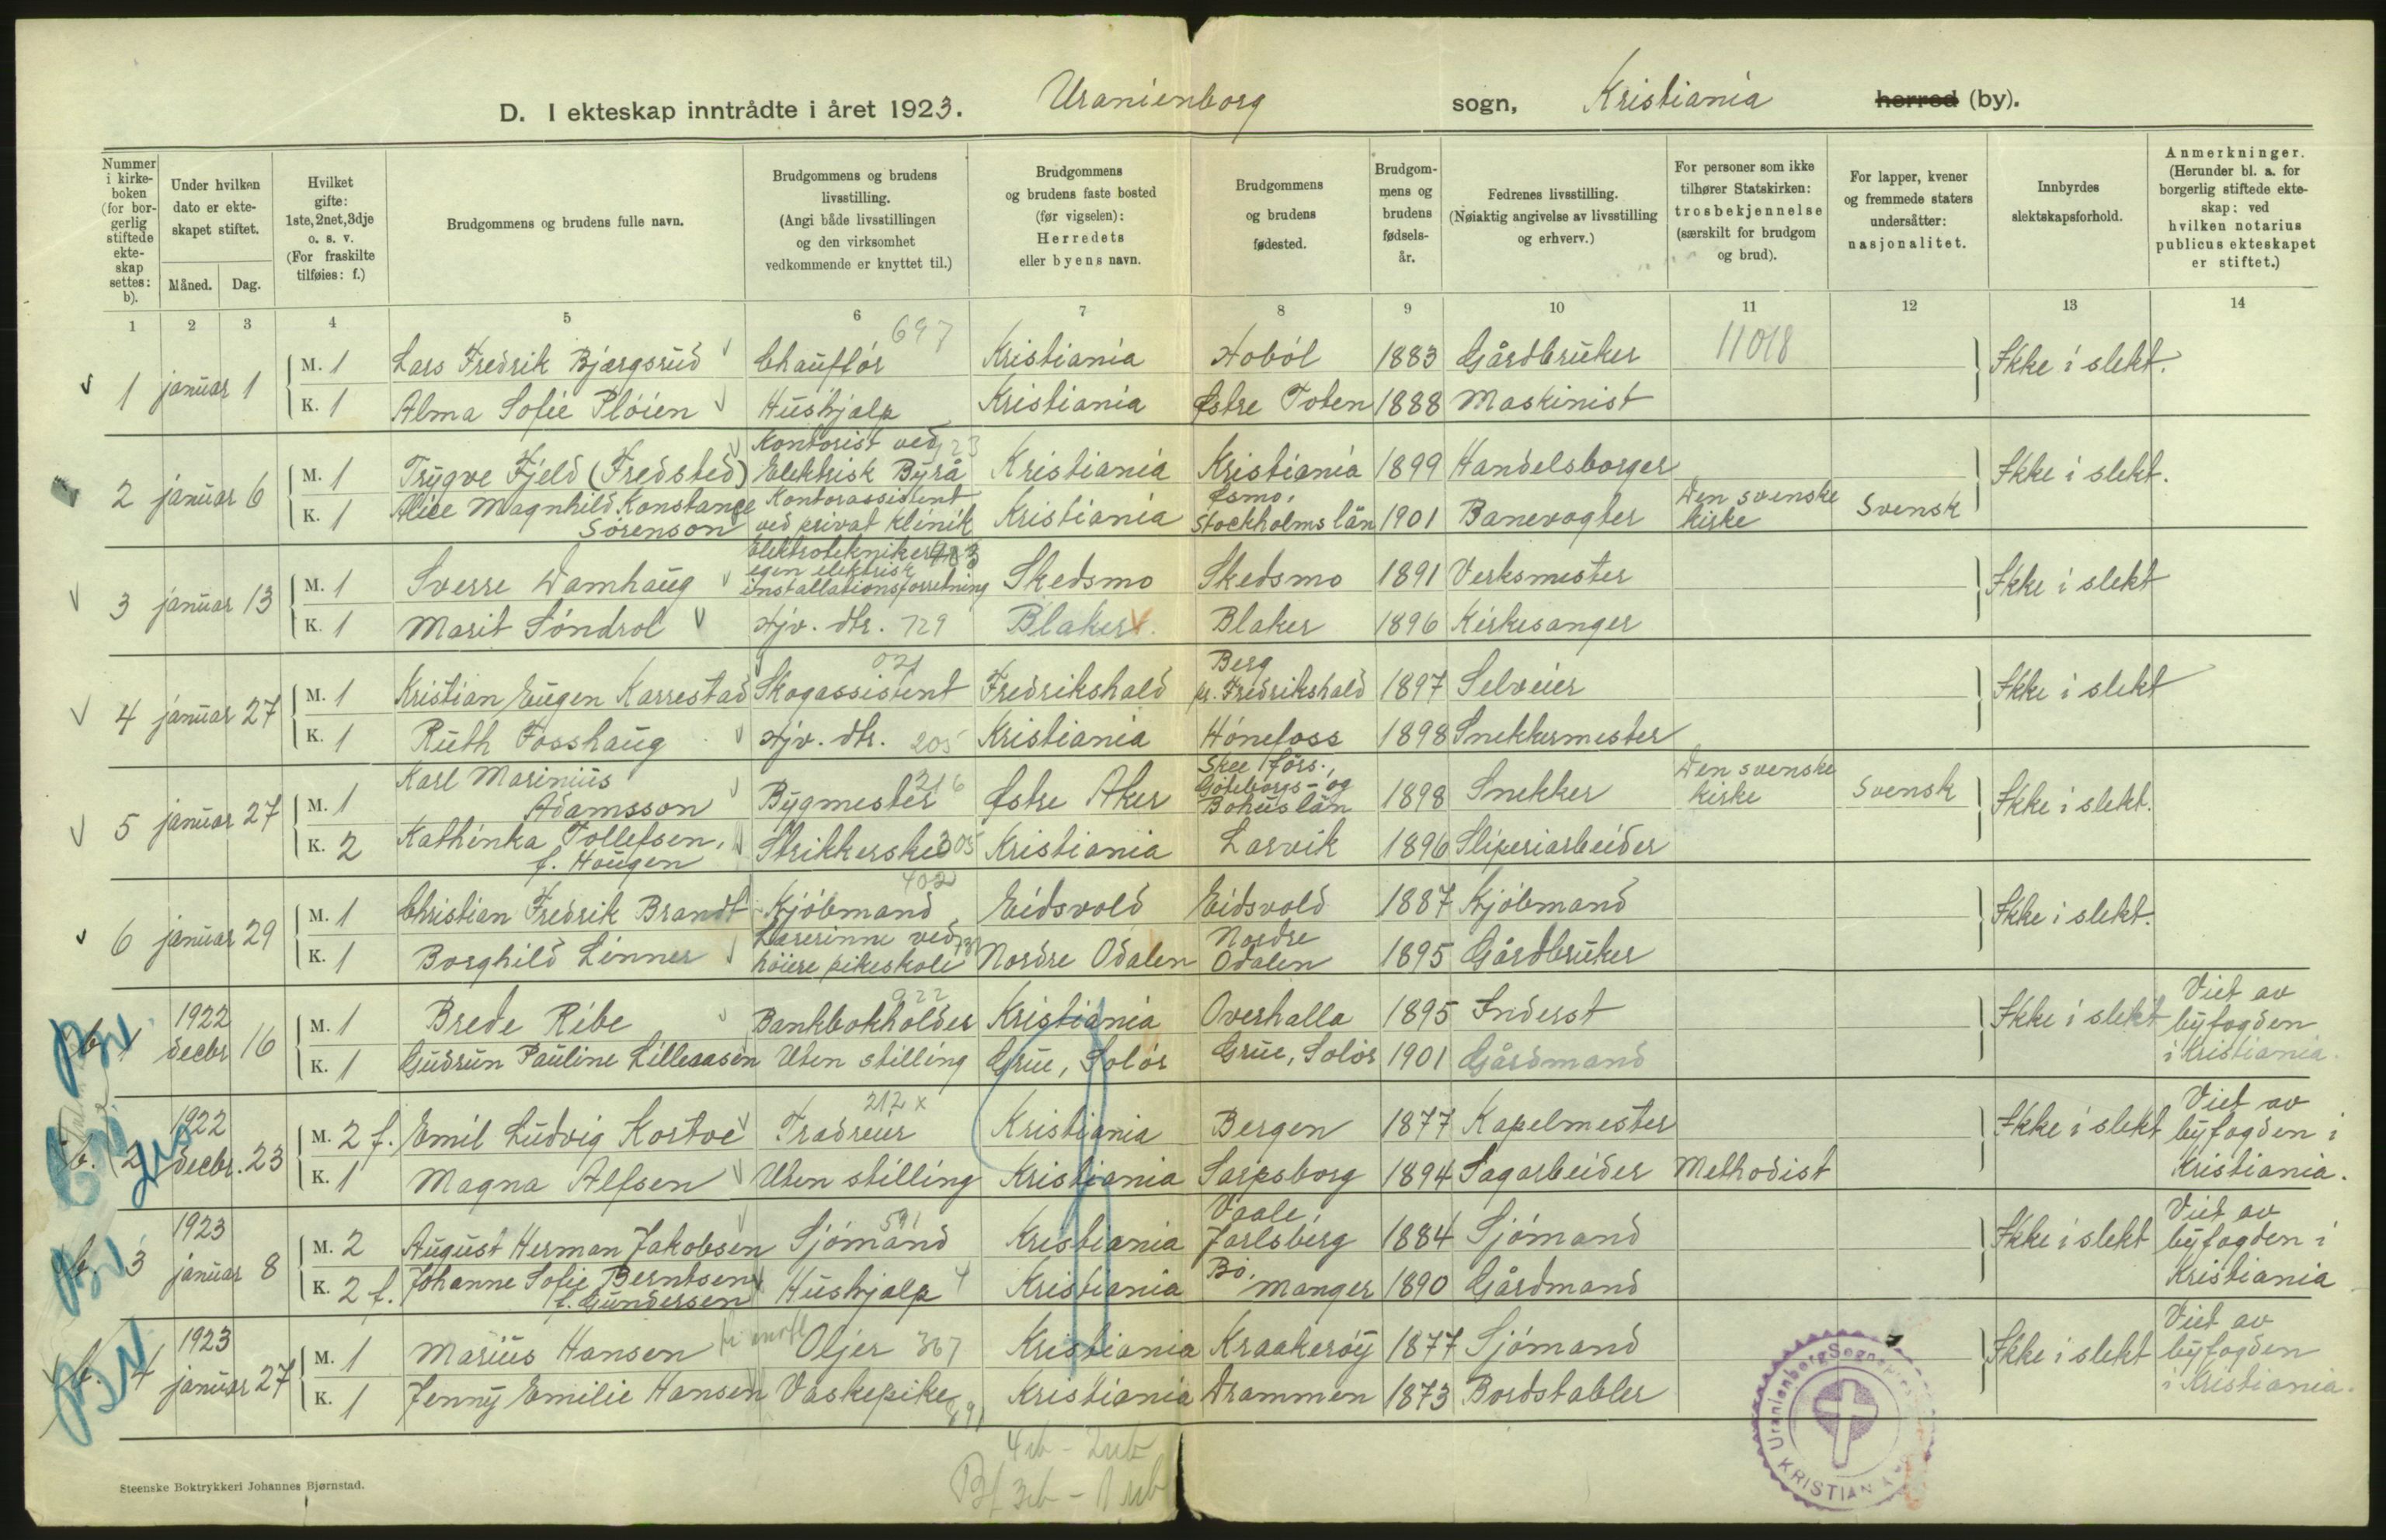 D. I ekteskap inntrådte i året 1923. Uranienborg sogn, Kristiania herred (by).
Nummer i kirkeboken (for borgerlig stiftede ekteskap settes: b).
Under hvilken dato er ekteskapet stiftet.
Måned. Dag.
Hvilket gifte: 1ste, 2net, 3dje o. s. v. (For fraskilte tilføies: f.)
Brudgommens og brudens fulle navn.
Brudgommens og brudens livsstilling. (Angi både livsstillingen og den virksomhet vedkommende er knyttet til.)
Brudgommens og brudens faste bosted (før vigselen): Herredets eller byens navn.
Brudgommens og brudens fødested.
Brudgommens og brudens fødselsår.
Fedrenes livsstilling. (Nøiaktig angivelse av livsstilling og erhverv.)
For personer som ikke tilhører Statskirken: trosbekjennelse (særskilt for brudgom og brud).
For lapper, kvener og fremmede staters undersåtter: nasjonalitet.
Innbyrdes slektskapsforhold.
Anmerkninger. (Herunder bl. a. for borgerlig stiftede ekteskap: ved hvilken notarius publicus ekteskapet er stiftet.)
1 2 3 4 5 6 7 8 9 10 11 12 13 14
1 januar 1 M. 1 Lars Fredrik Bjærgsrud Chauffør 697 Kristiania Hobøl 1883 Gårdbruker 11018 Ikke i slekt.
K. 1 Alma Sofie Pløien Hushjælp Kristiania Østre Toten 1888 Maskinist
2 januar 6 M. 1 Trygve Fjeld (Fredsted) Kontorist ved Elektrisk Byrå Kristiania Kristiania 1899 Handelsborger Ikke i slekt.
K. 1 Alice Magnhild Konstange Sørenson Kontorassistent ved privat klinik Kristiania Øsmo, Stockholms län 1901 Banevogter Den svenske kirke Svensk
3 januar 13 M. 1 Sverre Damhaug Elektrotekniker egen elektrisk installationsforretning Skedsmo Skedsmo 1891 Verksmester Ikke i slekt
K. 1 Marit Søndrol Hjv. dtr. 729 Blaker Blaker 1896 Kirkesanger
4 januar 27 M. 1 Kristian Eugen Karrestad Skogassistent 021 Fredrikshald Berg pr. Fredrikshald 1897 Selveier Ikke i slekt
K. 1 Ruth Fosshaug Hjv. dtr. 205 Kristiania Hønefoss 1898 Snekkermester
5 januar 27 M. 1 Karl Marinius Adamsson Bygmester 216 Østre Aker Skee förs., Göteborgs- og Bohuslän 1898 Snekker Den svenske kirke Svensk Ikke i slekt.
K. 2 Kathinka Tollefsen, f. Haugen Strikkerske 305 Kristiania Larvik 1896 Sliperiarbeider
6 januar 29 M. 1 Christian Fredrik Brandt Kjøbmand 402 Eidsvold Eidsvold 1887 Kjøbmand Ikke i slekt.
K. 1 Borghild Linner Lærerinne ved høiere pikeskole Nordre Odalen Nordre Odalen 1895 Gårdbruker
b. 1 1922 decbr 16 M. 1 Brede Ribe Bankbokholder 922 Kristiania Overhalla 1895 Inderst Ikke i slekt Viet av byfogden i Kristiania.
K. 1 Gudrun Pauline Lilleaasen Uten stilling Grue, Solør Grue, Solør 1901 Gårdmand
b. 2 1922 decbr. 23 M. 2 f. Emil Ludvig Kostve Tradreier 212 x Kristiania Bergen 1877 Kapelmester Ikke i slekt Viet av byfogden i Kristiania.
K. 1 Magna Alfsen Uten stilling Kristiania Sarpsborg 1894 Sagarbeider Methodist
b. 3 1923 januar 8 M. 2 August Herman Jakobsen Sjømand 591 Kristiania Vaale, Jarlsberg 1884 Sjømand Ikke i slekt Viet av byfogden i Kristiania
K. 2 f. Johanne Sofie Berntsen f. Gundersen Hushjælp 4 Kristiania Bø, Manger 1890 Gårdmand
b. 4 1923 januar 27 M. 1 Marius Hansen Oljer 367 Kristiania Kraakerøy 1877 Sjømand Ikke i slekt Viet av byfogden i Kristiania.
K. 1 Jenny Emilie Hansen Vaskepike 691 Kristiania Drammen 1873 Bordstabler
4 ub - 2 ub
Bf 3 ub - 1 ub
Uranienborg Sogneprest
KRISTIANIA
Steenske Boktrykkeri Johannes Bjørnstad.